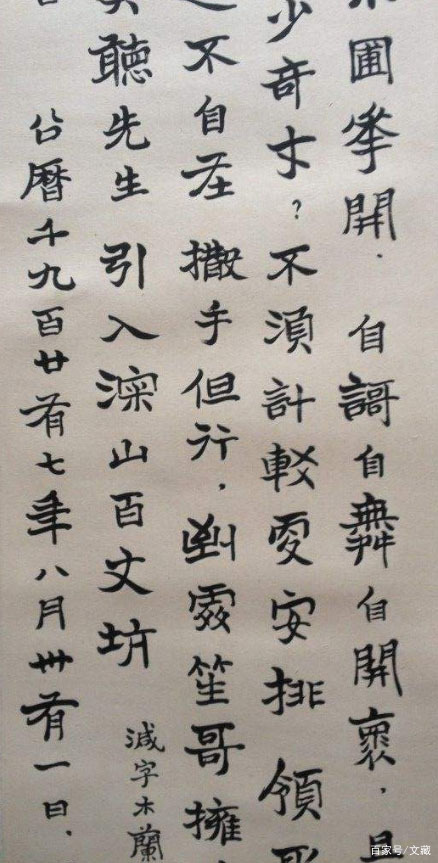 圃華開. 自謌自舞自開褱, 且
少奇才? 不須計較更安排 領
不自在 撒手但行, 到處笙哥擁
聽先生 引入深山百丈坑
減字木蘭
公曆千九百廿有七年八月卅有一日.
百家号/文藏